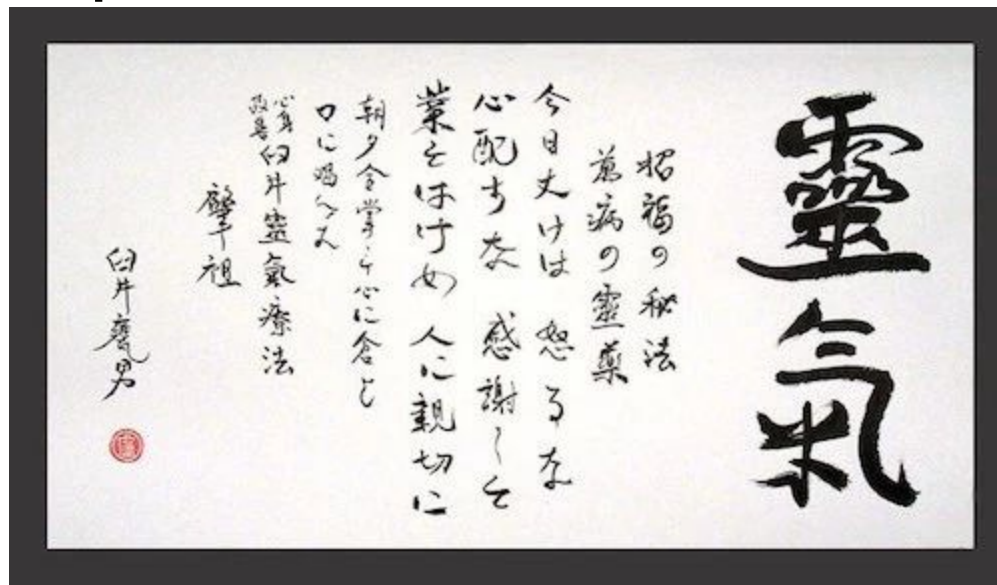 靈氣
招福の秘法
萬病の靈藥
今日丈けは 怒るな
心配すな 感謝して
業をはけめ 人に親切に
朝夕合掌して心に念じ
口に唱へよ
心身
改善 臼井靈氣療法
肇祖
臼井甕男